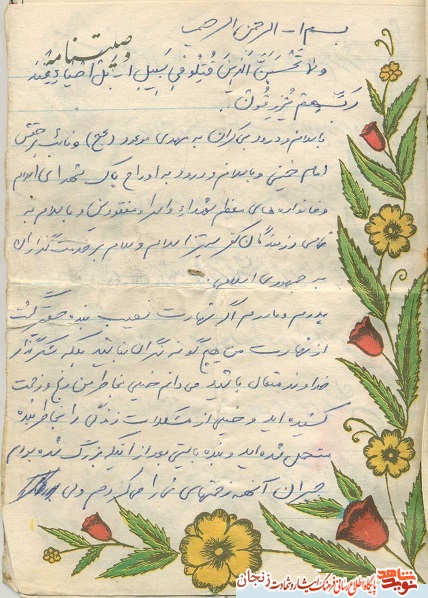 وصیتنامه
بسم ا... الرحمن الرحیم
ولا تحسبن الذین قتلوا فی سبیل ا... بل احیاء عند
ربهم یرزقون.
با سلام و درود بیکران به مهدی موعود (عج) و نائب برحقش
امام خمینی و با سلام و درود به ارواح پاک شهدای اسلام
و خانواده های معظم شهداء و اسراء و مفقودین و با سلام به
تمامی رزمندگان کفر ستیز اسلام و سلام بر خدمتگذاران
به جمهوری اسلامی.
پدرم و مادرم اگر شهادت نصیب بنده حقیر گشت
از شهادت من هیچ گونه نگران نباشید بلکه شکرگذار
خداوند متعال باشید می دانم خیلی بخاطر من رنج و زحمت
کشیده اید و خیلی از مشکلات زندگی را بخاطر بنده
متحمل شده اید و بنده بایستی بعد از آنیکه بزرگ شده بودم
جبران آنهمه زحمتهای شما را می کردم ولی
شاهد
نوید
پایگاه اطلاع رسانی فرهنگ ایثار و شهادت استان زنجان